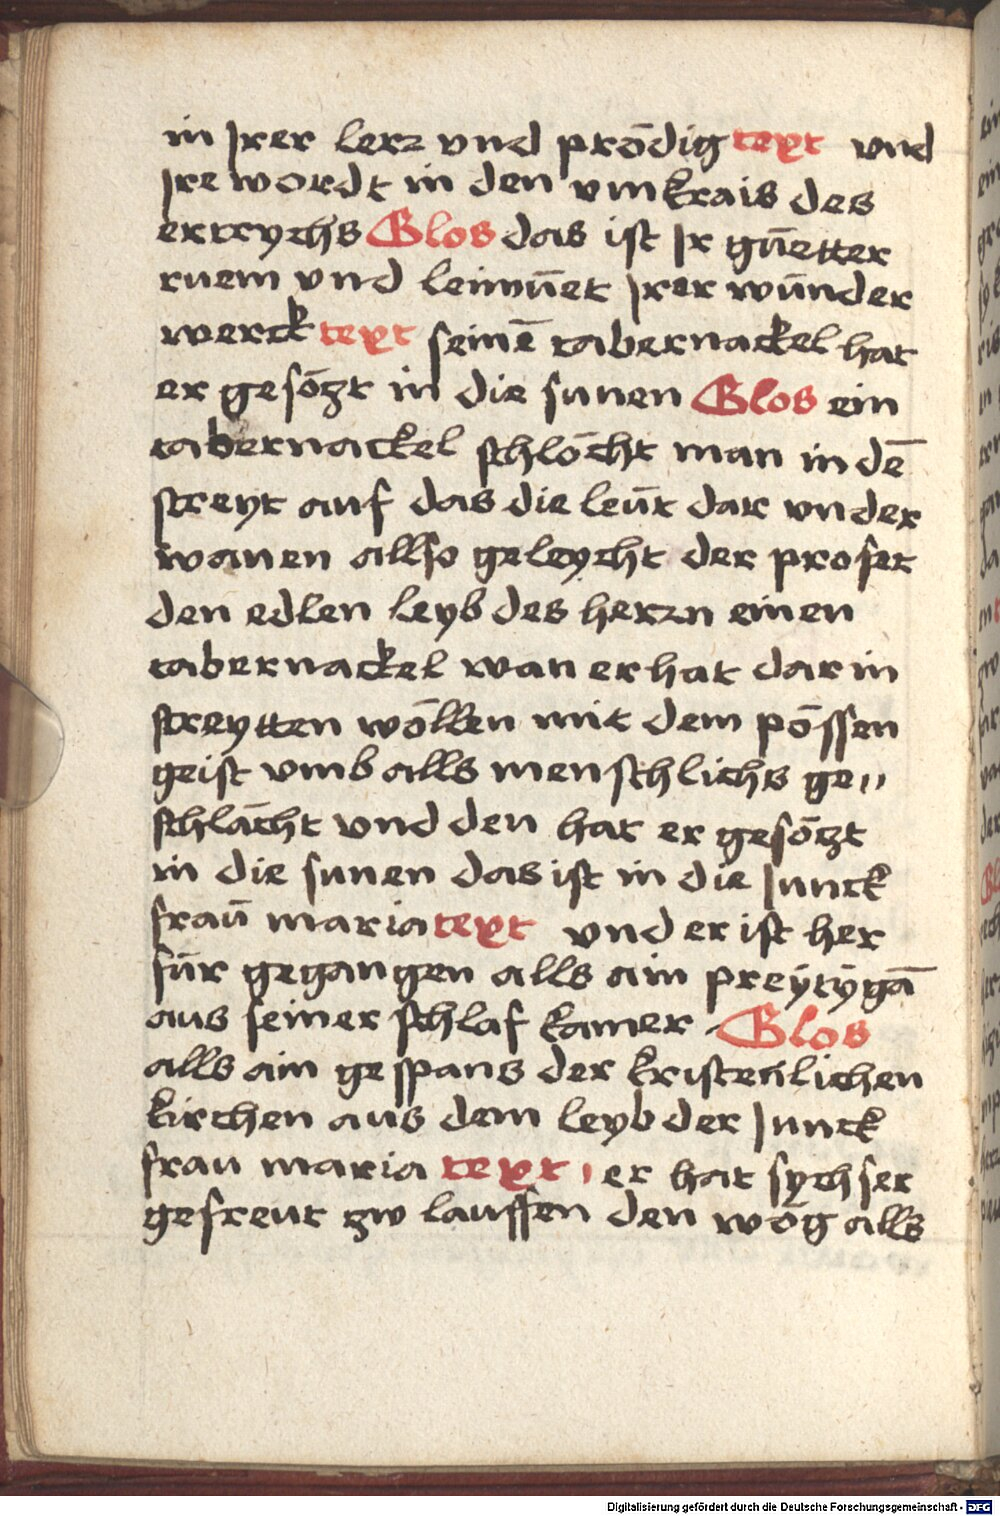 in Jrer lerz vnd prōdig text vnd
Jre wordt in den vmkrais des
ertrychs Glos das ist Jr gūetter
ruem vnd leimūet Jrer wūnder
werck text seinē tabernackel hat
er gesōzt in die sunen Glos ein
tabernackel schlōcht man in dē
streyt auf das die leūt dar vnder
wanen allso geleycht der profet
den edlen leyb des herzn einen
tabernackel wan er hat dar in
streytten wōllen mit dem pōssen
geist vmb alls menschlichs ge〃
schlācht vnd den hat er gesōtzt
in die sunen das ist in die Junck
fraū maria text vnd er ist her
fūr gegangen alls ain preÿtÿgā
aus seiner schlaf kamer Glos
alls ain gespans der kristenlichen
kirchen aus dem leyb der Junck
frau maria text er hat sych ser
gefreut zw lauffen den wōg alls
Digitalisierung gefördert durch die Deutsche Forschungsgemeinschaft - DFG